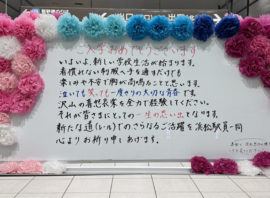 ご入学おめでとうございます
いよいよ、新しい学校生活が始まります。
着慣れない制服へ手を通すだけでも
楽しみや不安で胸が高鳴ることと思います。
泣いても笑っても一度きりの大切な青春です。
沢山の喜怒哀楽を全力で経験してください。
それが皆さまにとっての一生の思い出となります。
新たな道(レール)でのさらなるご活躍を浜松駅員一同
心よりお祈り申しあげます。